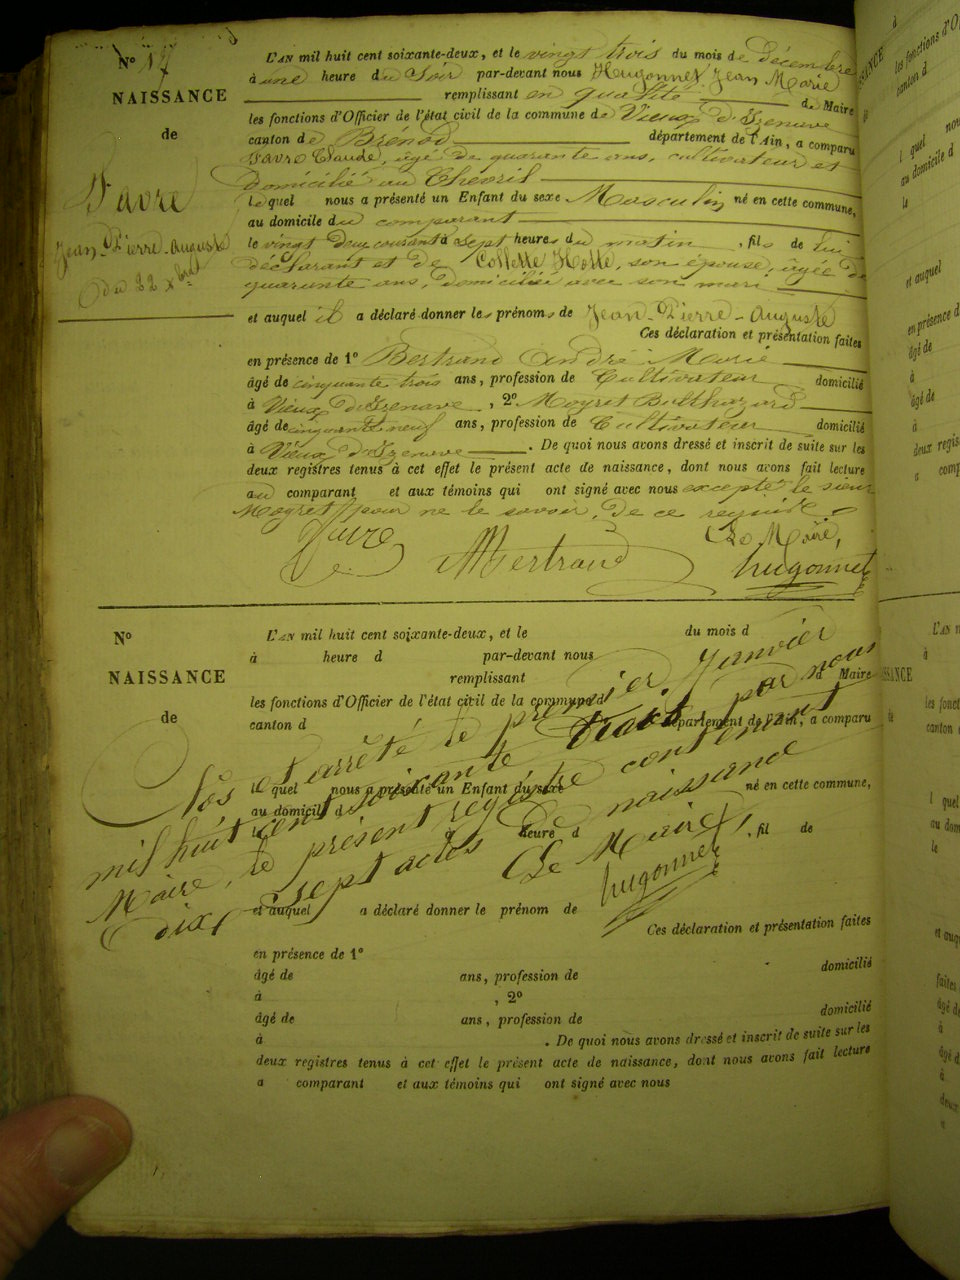 N° 17
NAISSANCE
de
Favre
Jean-Pierre-Auguste
du 22 Xbre
L'AN mil huit cent soixante-deux, et le vingt trois du mois de décembre
à une heure du Soir par-devant nous Hugonnet Jean Marie
remplissant en qualité de Maire
les fonctions d'Officier de l'état civil de la commune de Vieux d'Izenave
canton de Brénod département de l'Ain, a comparu
Favre Claude, âgé de quarante ans, cultivateur et
domicilié au Chévril
lequel nous a présenté un Enfant du sexe Masculin né en cette commune,
au domicile du comparant
le vingt deux courant à sept heures du matin, fils de lui
déclarant et de Collette Hotte, son épouse, âgée de
quarante ans, domiciliée avec son mari
et auquel il a déclaré donner les prénoms de Jean-Pierre-Auguste
Ces déclaration et présentation faites
en présence de 1° Bertrand André Marie
âgé de cinquante trois ans, profession de Cultivateur domicilié
à Vieux d'Izenave, 2° Moyret Balthazard
âgé de cinquante neuf ans, profession de Cultivateur domicilié
à Vieux d'Izenave. De quoi nous avons dressé et inscrit de suite sur les
deux registres tenus à cet effet le présent acte de naissance, dont nous avons fait lecture
au comparant et aux témoins qui ont signé avec nous excepté le sieur
Moyret pour ne le savoir, de ce requis
Favre Bertrand Le Maire,
hugonnet
N°
NAISSANCE
de
L'AN mil huit cent soixante-deux, et le du mois d
à heure d par-devant nous
remplissant d Maire
les fonctions d'Officier de l'état civil de la commune d
canton d département de l'Ain, a comparu
lequel nous a présenté un Enfant du sexe né en cette commune,
au domicile d
le à heure d , fil de
et auquel a déclaré donner le prénom de
Ces déclaration et présentation faites
en présence de 1°
âgé de ans, profession de domicilié
à , 2°
âgé de ans, profession de domicilié
à . De quoi nous avons dressé et inscrit de suite sur les
deux registres tenus à cet effet le présent acte de naissance, dont nous avons fait lecture
a comparant et aux témoins qui ont signé avec nous
Clos et arrêté le premier Janvier
mil huit cent soixante trois par nous
Maire, le présent registre contenant
dix sept actes de naissance
Le Maire,
hugonnet